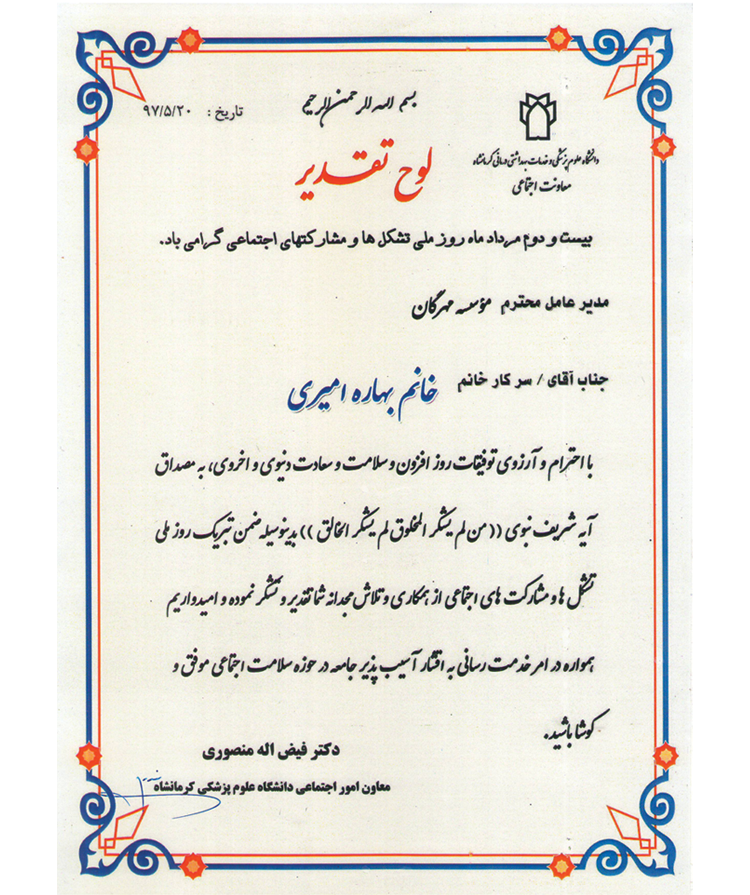 بسم الله الرحمن الرحیم
تاریخ : ۹۷/۵/۲۰
دانشگاه علوم پزشکی و خدمات بهداشتی درمانی کرمانشاه
معاونت اجتماعی
لوح تقدیر
بیست و دوم مرداد ماه روز ملی تشکل ها و مشارکتهای اجتماعی گرامی باد.
مدیر عامل محترم مؤسسه مهرگان
جناب آقای / سرکار خانم خانم بهاره امیری
با احترام و آرزوی توفیقات روز افزون و سلامت و سعادت دنیوی و اخروی، به مصداق
آیه شریف نبوی ((من لم یشکر المخلوق لم یشکر الخالق)) بدینوسیله ضمن تبریک روز ملی
تشکل ها و مشارکت های اجتماعی از همکاری و تلاش مجدانه شما تقدیر و تشکر نموده و امیدواریم
همواره در امر خدمت رسانی به اقشار آسیب پذیر جامعه در حوزه سلامت اجتماعی موفق و
کوشا باشید.
دکتر فیض اله منصوری
معاون امور اجتماعی دانشگاه علوم پزشکی کرمانشاه